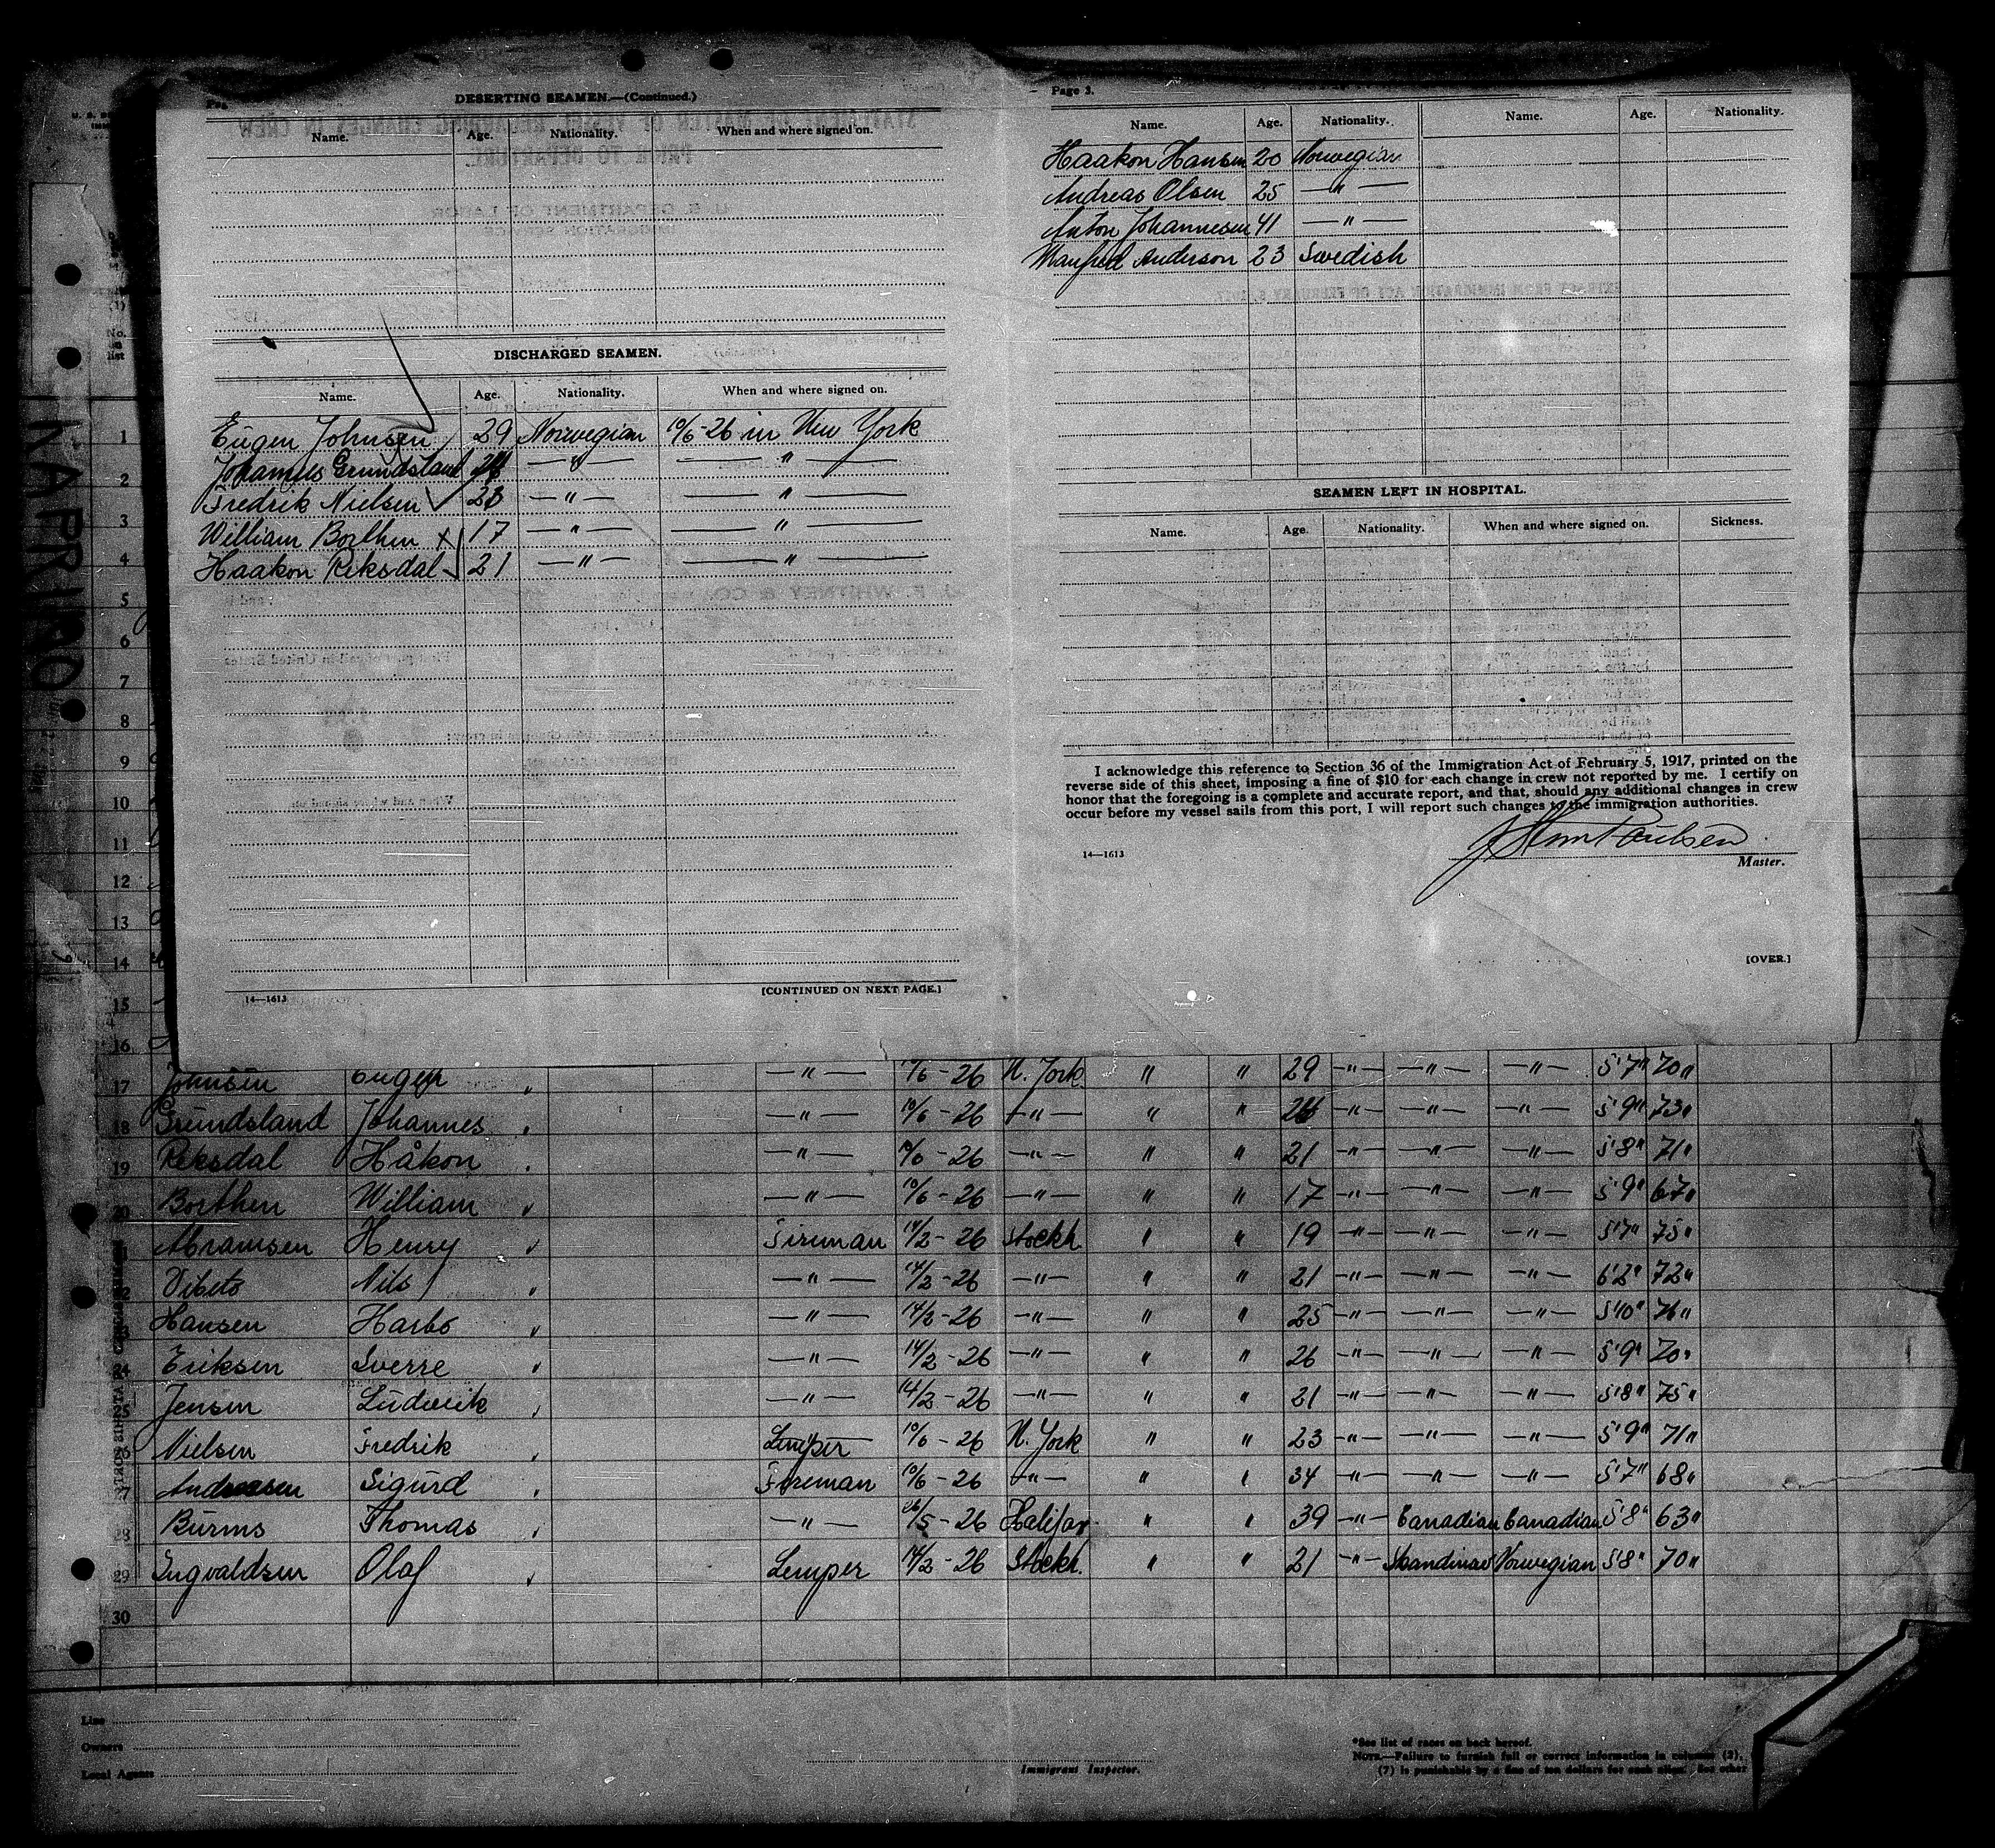 DESERTING SEAMEN.—(Continued.)
Name. Age. Nationality. When and where signed on.
DISCHARGED SEAMEN.
Name. Age. Nationality. When and where signed on.
Eugen Johnsen 29 Norwegian 10/6-26 in New York
Johannes Grundsland — " — — " —
Fredrik Nielsen ✓ 23 — " — — " —
William Borthen x 17 — " — — " —
Haakon Reksdal 21 — " — — " —
14—1613
[CONTINUED ON NEXT PAGE.]
Page 3.
Name. Age. Nationality. Name. Age. Nationality.
Haakon Hansen 20 Norwegian
Andreas Olsen 25 — " —
Anton Johannesen 41 — " —
Manfred Anderson 23 Swedish
SEAMEN LEFT IN HOSPITAL.
Name. Age. Nationality. When and where signed on. Sickness.
I acknowledge this reference to Section 36 of the Immigration Act of February 5, 1917, printed on the
reverse side of this sheet, imposing a fine of $10 for each change in crew not reported by me. I certify on
honor that the foregoing is a complete and accurate report, and that, should any additional changes in crew
occur before my vessel sails from this port, I will report such changes to the immigration authorities.
14—1613
Master.
[OVER.]
No. on list
1
2
3
4
5
6
7
8
9
10
11
12
13
14
15
16
17 Johnsen Eugen — " — 10/6-26 N. York " " 29 — " — — " — — " — 5'7" 70"
18 Grundsland Johannes — " — 10/6-26 — " — " " — " — — " — — " — 5'9" 73"
19 Reksdal Håkon — " — 10/6-26 — " — " " 21 — " — — " — — " — 5'8" 71"
20 Borthen William — " — 10/6-26 — " — " " 17 — " — — " — — " — 5'9" 67"
21 Abramsen Henry Fireman 14/2-26 Stockh. " " 19 — " — — " — — " — 5'7" 75"
22 Vibeto Nils — " — 14/2-26 — " — " " 21 — " — — " — — " — 6'2" 72"
23 Hansen Harbo — " — 14/2-26 — " — " " 25 — " — — " — — " — 5'10" 76"
24 Eriksen Sverre — " — 14/2-26 — " — " " 26 — " — — " — — " — 5'9" 70"
25 Jensen Ludvik — " — 14/2-26 — " — " " 21 — " — — " — — " — 5'8" 75"
26 Nielsen Fredrik Lemper 10/6-26 N. York " " 23 — " — — " — — " — 5'9" 71"
27 Andreasen Sigurd Fireman 10/6-26 — " — " " 34 — " — — " — — " — 5'7" 68"
28 Burms Thomas — " — 26/5-26 Halifax " " 39 — " — Canadian Canadian 5'8" 63"
29 Ingvaldsen Olaf Lemper 14/2-26 Stockh. " " 21 — " — Skandinav Norwegian 5'8" 70"
30
Line
Owners
Local Agents
Immigrant Inspector.
*See list of races on back hereof.
NOTE.—Failure to furnish full or correct information in columns (3),
(7) is punishable by a fine of ten dollars for each alien. See other